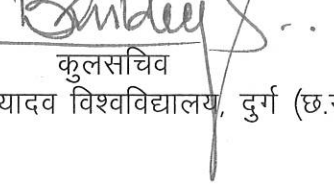 कुलसचिव
यादव विश्वविद्यालय, दुर्ग (छ.